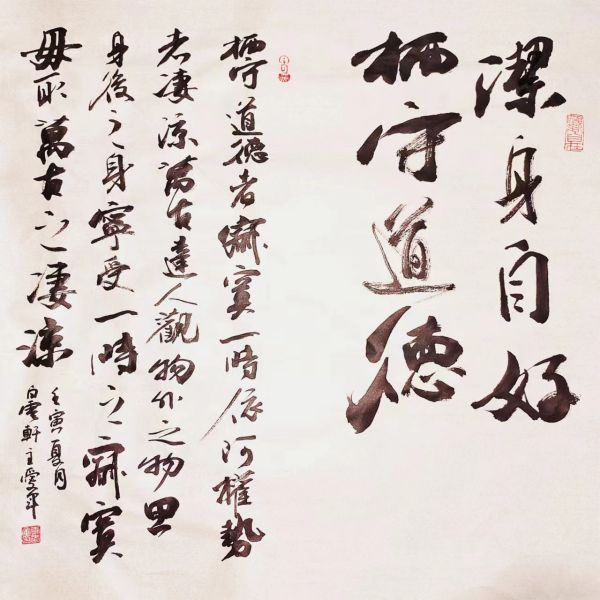 潔身自好
栖守道德
栖守道德者寂寞一時依阿權勢
者凄涼萬古達人觀物外之物思
身後之身寧受一時之寂寞
毋取萬古之凄涼
壬寅夏月
白雲軒主